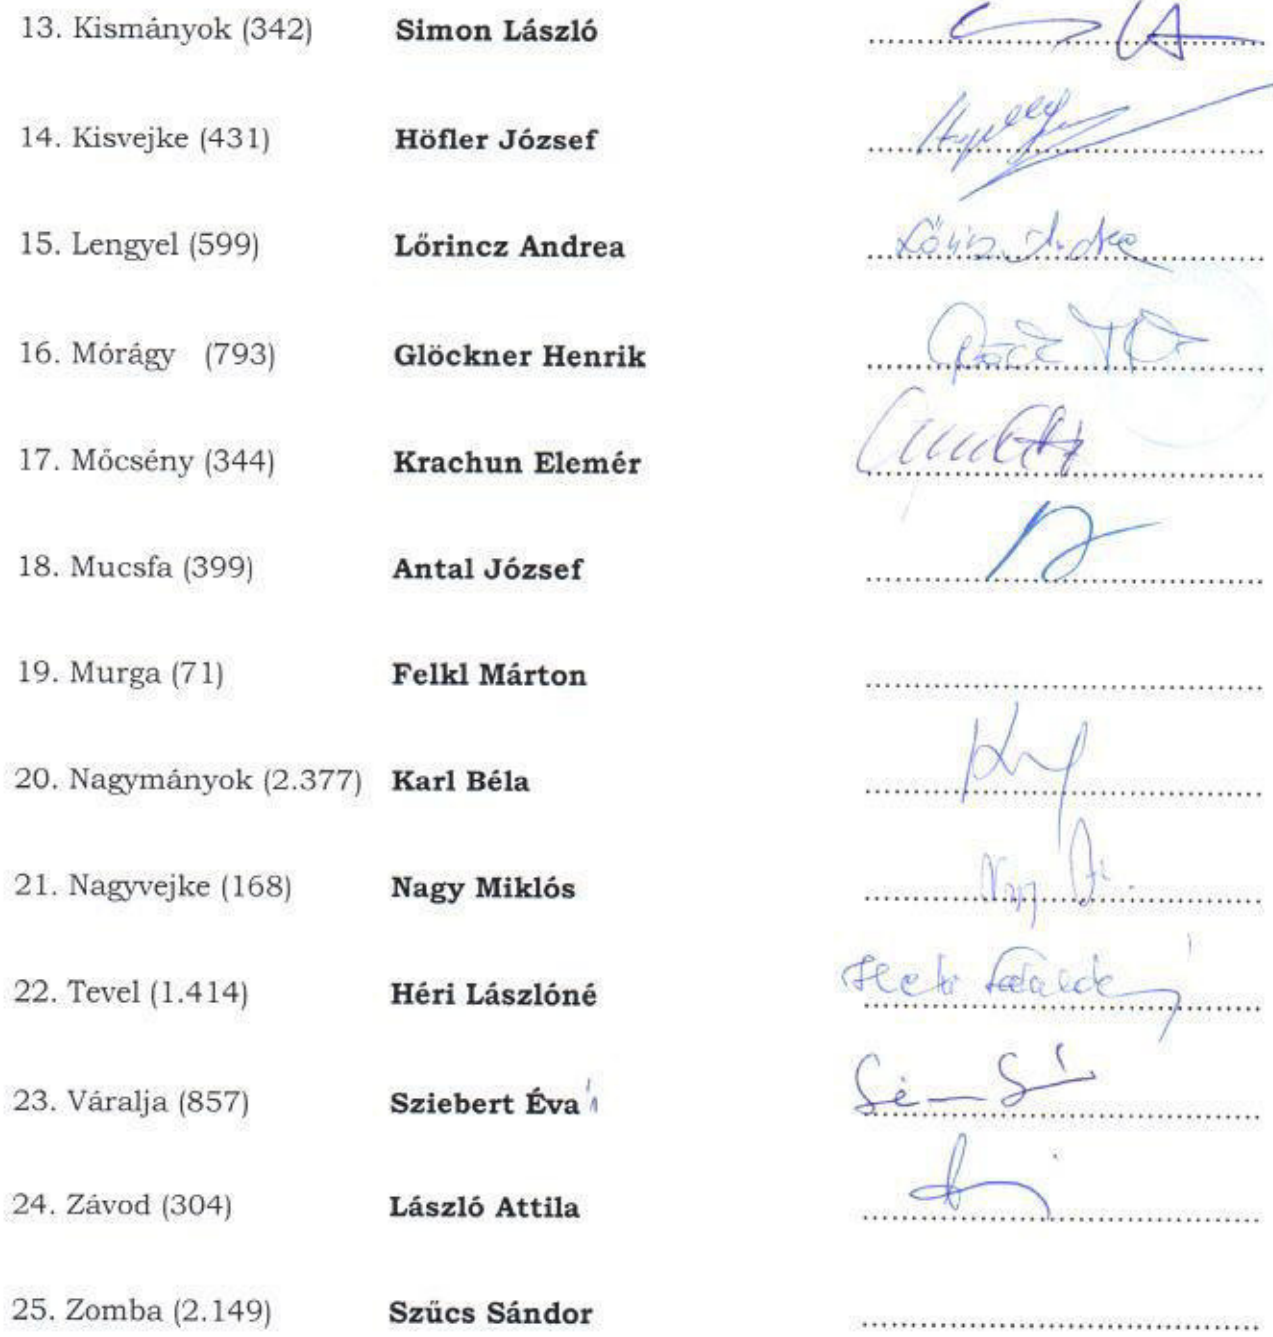 13. Kismányok (342) Simon László
14. Kisvejke (431) Höfler József
15. Lengyel (599) Lőrincz Andrea Lőrincz Andrea
16. Mórágy (793) Glöckner Henrik
17. Mőcsény (344) Krachun Elemér
18. Mucsfa (399) Antal József
19. Murga (71) Felkl Márton
20. Nagymányok (2.377) Karl Béla
21. Nagyvejke (168) Nagy Miklós
22. Tevel (1.414) Héri Lászlóné
23. Váralja (857) Sziebert Éva
24. Závod (304) László Attila
25. Zomba (2.149) Szűcs Sándor